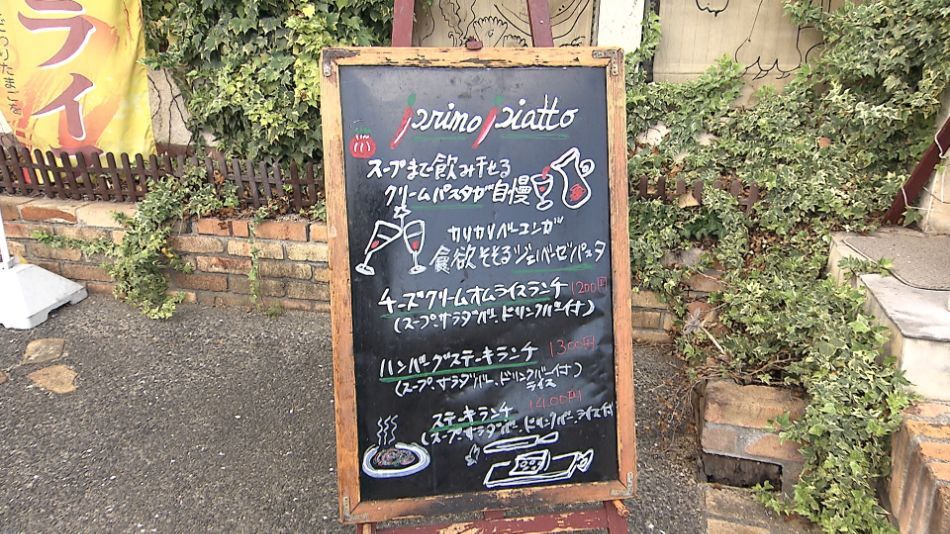 ライ
primo piatto
スープまで飲み干せる
クリームパスタが自慢
カリカリベーコンが
食欲そそるジェノベーゼパスタ
チーズクリームオムライスランチ 1200円
(スープ、サラダバー、ドリンクバー付)
ハンバーグステーキランチ 1300円
(スープ、サラダバー、ドリンクバー付)
ライス
ステーキランチ 1400円
(スープ、サラダバー、ドリンクバー、ライス付)